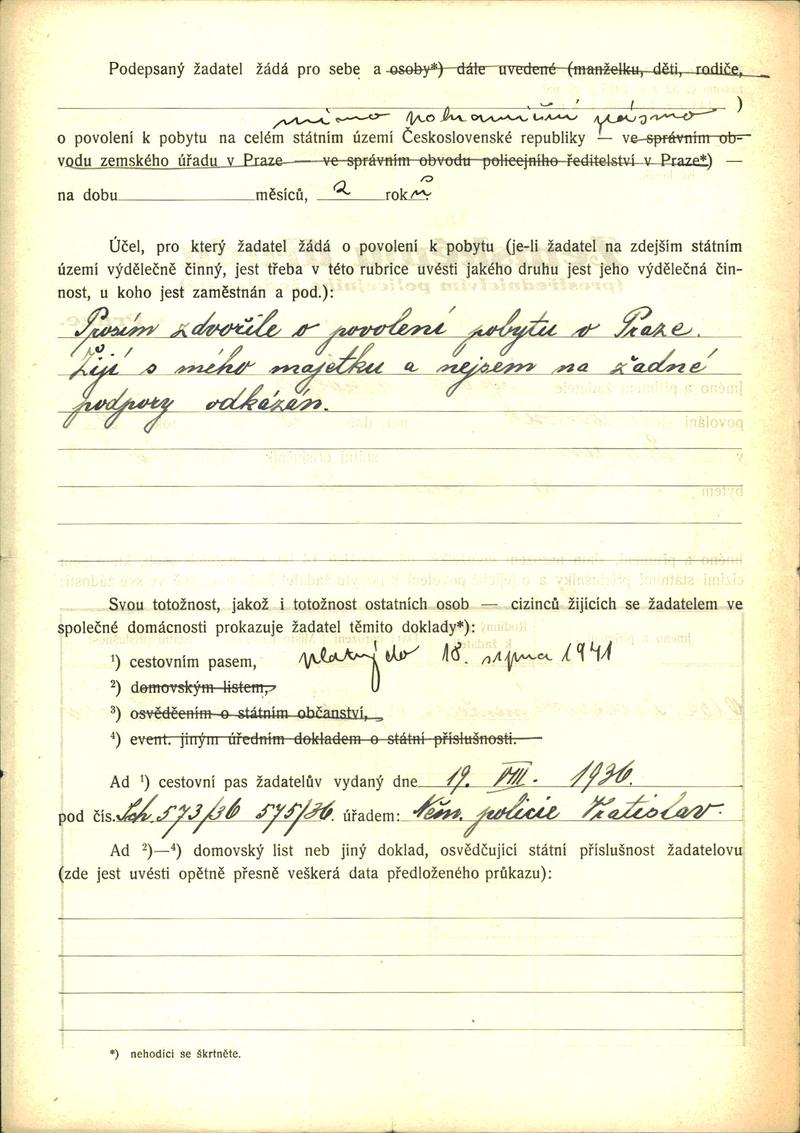 Podepsaný žadatel žádá pro sebe a osoby*) dále uvedené (manželku, děti, rodiče,
mimo pohraniční pásmo )
o povolení k pobytu na celém státním území Československé republiky — ve správním ob-
vodu zemského úřadu v Praze — ve správním obvodu policejního ředitelství v Praze*) —
na dobu měsíců, 2 roků
Účel, pro který žadatel žádá o povolení k pobytu (je-li žadatel na zdejším státním
území výdělečně činný, jest třeba v této rubrice uvésti jakého druhu jest jeho výdělečná čin-
nost, u koho jest zaměstnán a pod.):
Prosím zdvořile o povolení pobytu v Praze.
Žiji s mého majetku a nejsem na žadné
podpory odkázán.
Svou totožnost, jakož i totožnost ostatních osob — cizinců žijících se žadatelem ve
společné domácnosti prokazuje žadatel těmito doklady*):
¹) cestovním pasem, platný do 18. srpna 1941
²) domovským listem,
³) osvědčením o státním občanství,
⁴) event. jiným úředním dokladem o státní příslušnosti.
Ad ¹) cestovní pas žadatelův vydaný dne 19. VIII. 1936.
pod čís. Sch. 573/36 575/36. úřadem: Něm. policie Vratislav.
Ad ²)—⁴) domovský list neb jiný doklad, osvědčující státní příslušnost žadatelovu
(zde jest uvésti opětně přesně veškerá data předloženého průkazu):
*) nehodící se škrtněte.